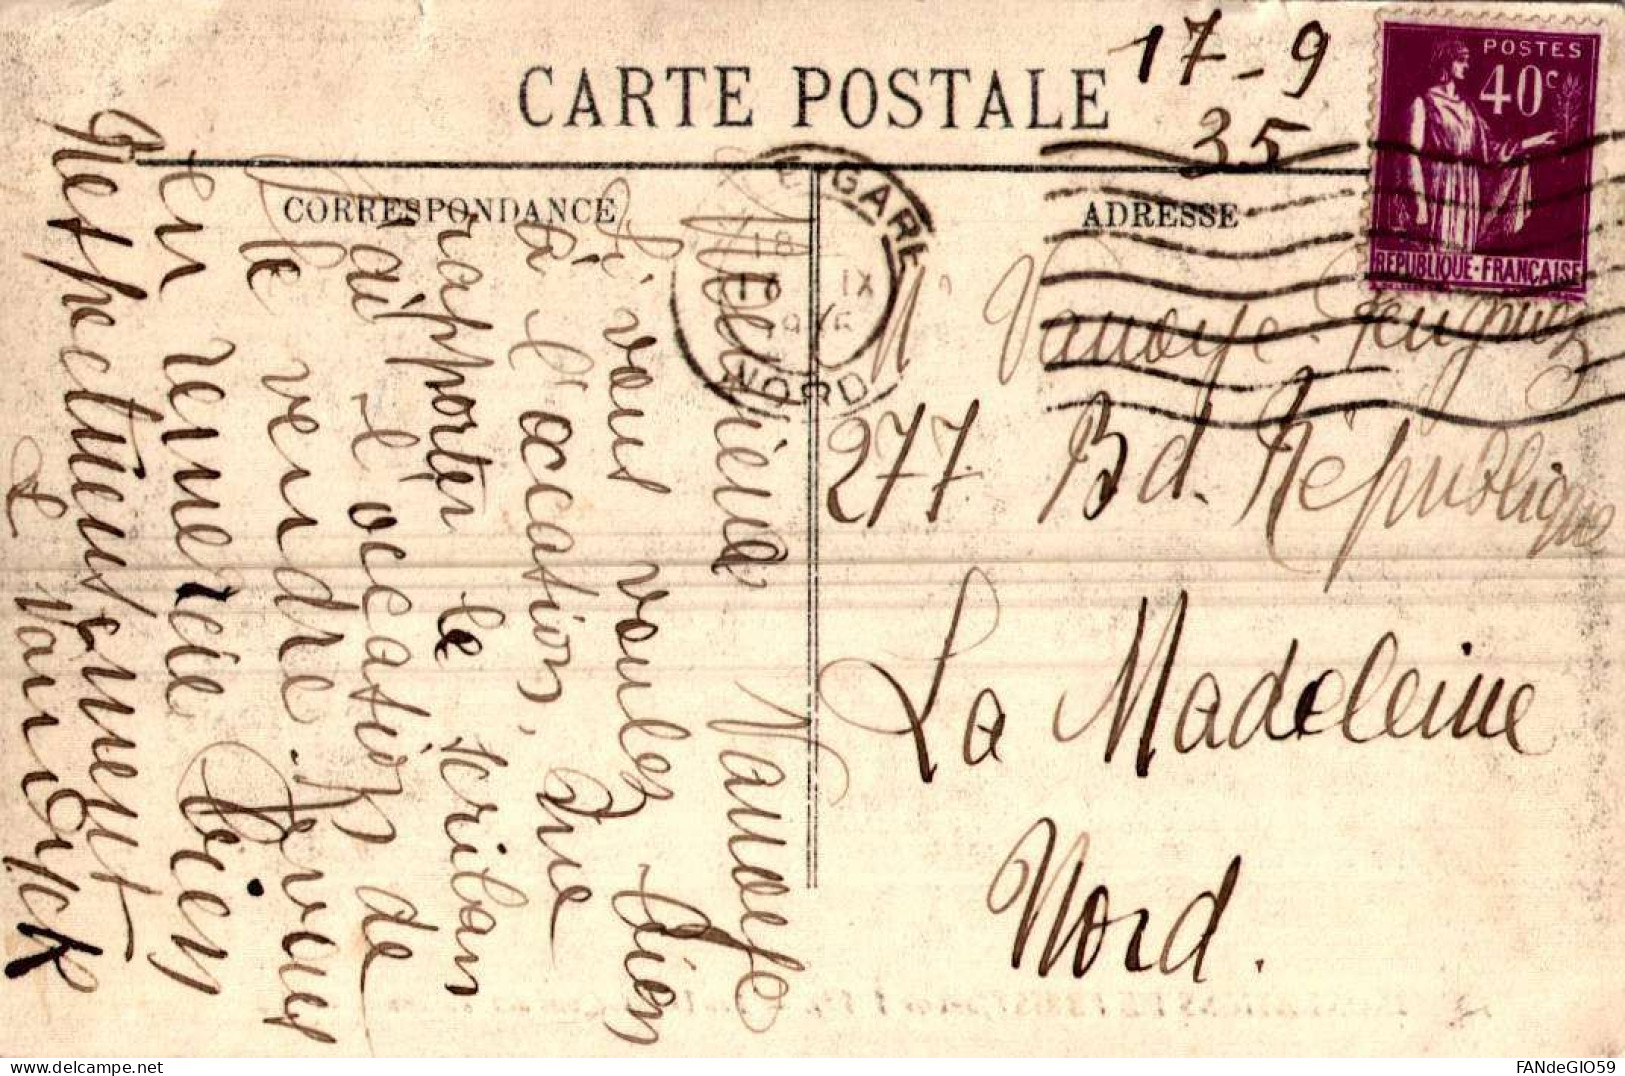 CARTE POSTALE
17-9
35
POSTES
40c
REPUBLIQUE-FRANÇAISE
CORRESPONDANCE
ADRESSE
GARE
18
IX
NORD
Mr Vanoye
277 Bd. République
La Madeleine
Nord.
Vanoeye
Si vous voulez bien
à l'occasion, me
rapporter le scriban
j'ai l'occasion de
le vendre. Je vous
en remercie bien
Respectueusement